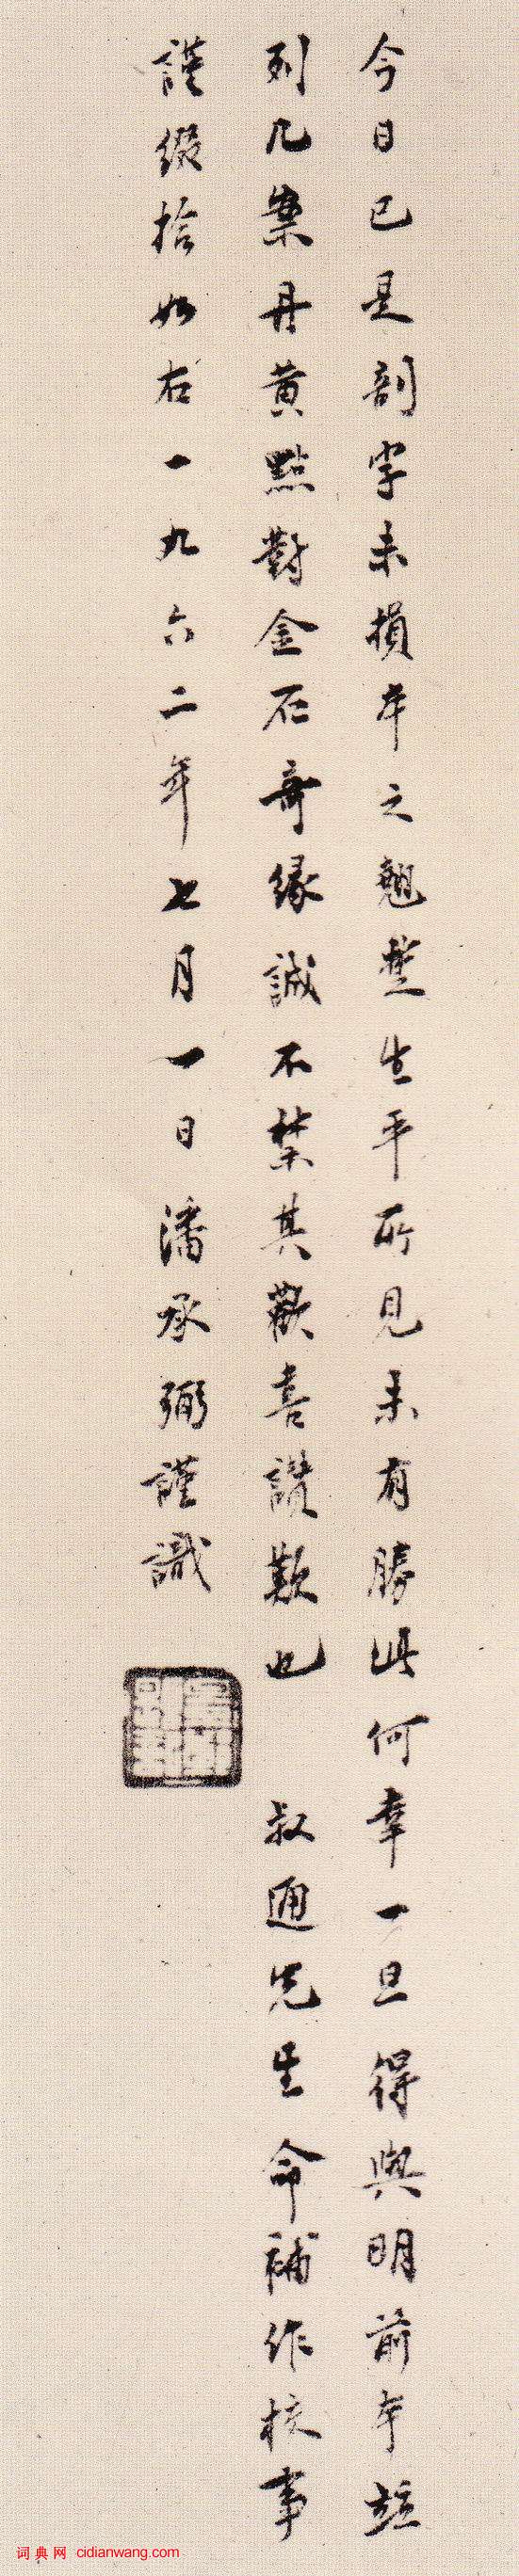 今日已是剖字未損本之翹楚生平所見未有勝此何幸一旦得與明前本並
列几案丹黃點對金石奇緣誠不禁其歡喜讚歎也 叔通先生命補作校事
謹綴拾如右一九六二年七月一日潘承弼謹識
词典网 cidianwang.com